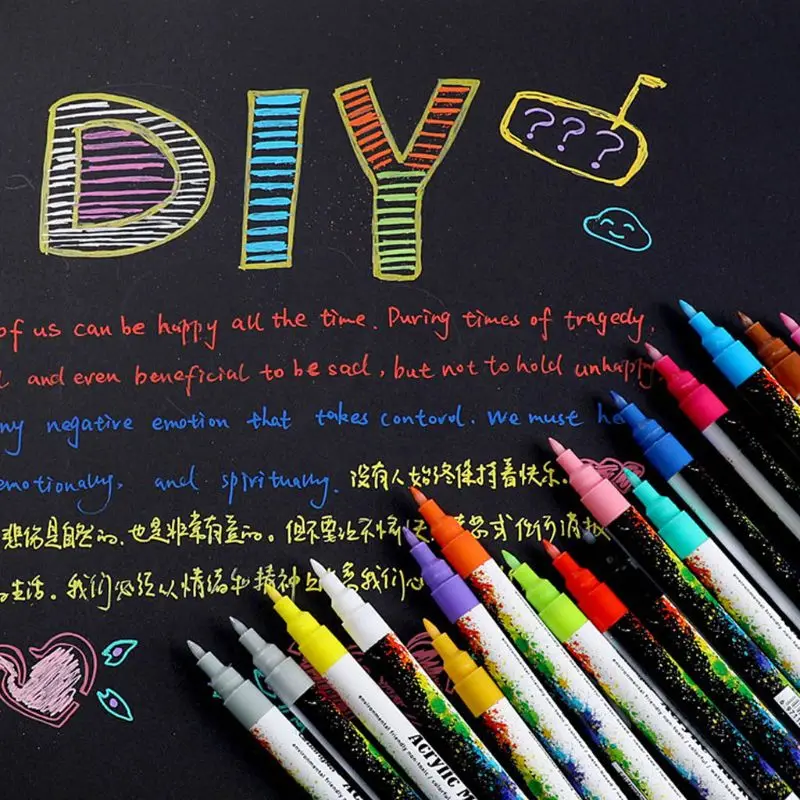 DIY
? ? ?
of us can be happy all the time. During times of tragedy,
and even beneficial to be sad, but not to hold unhappy
ny negative emotion that takes contord. We must he
emotionally, and spiritually. 没有人始终保持着快乐。
悲伤是自然的，也是非常有益的。但不要让不愉快
生活。我们必须从情绪和精神上
environmental friendly non-toxic / colorful
environmental friendly non-toxic / colorful
Acrylic M